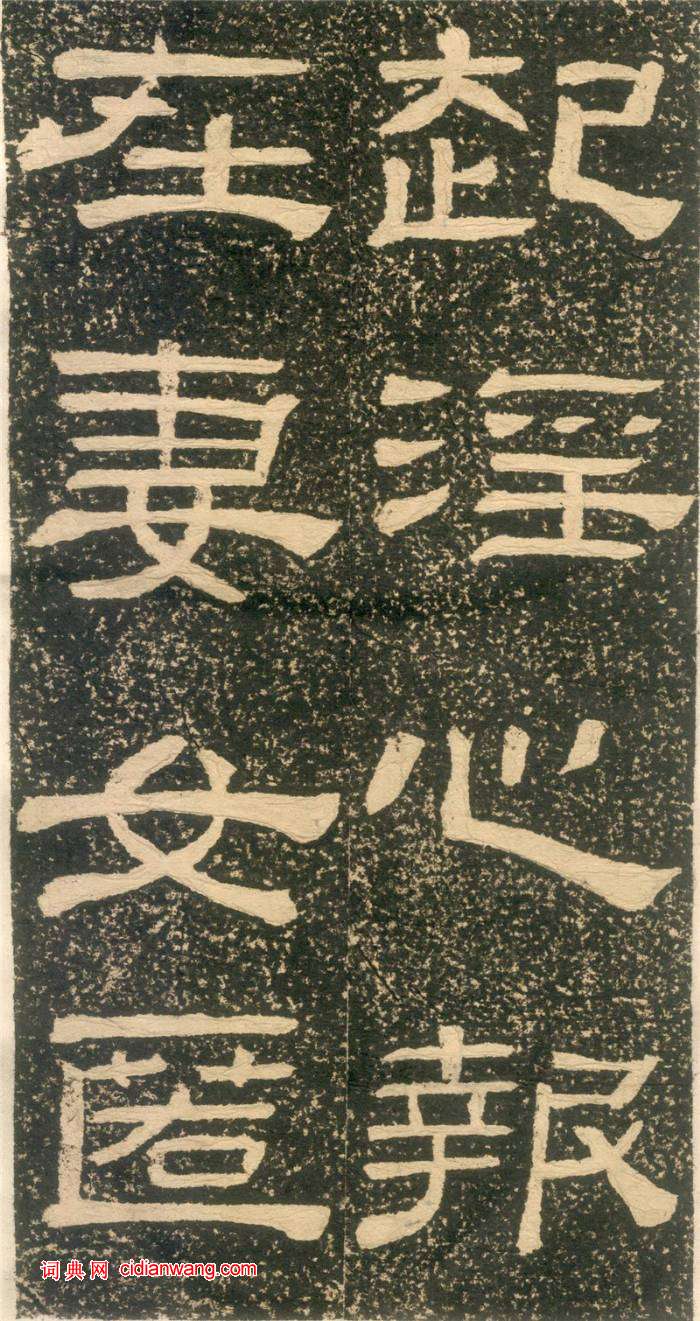 起淫心報
在妻女匿
词典网 cidianwang.com